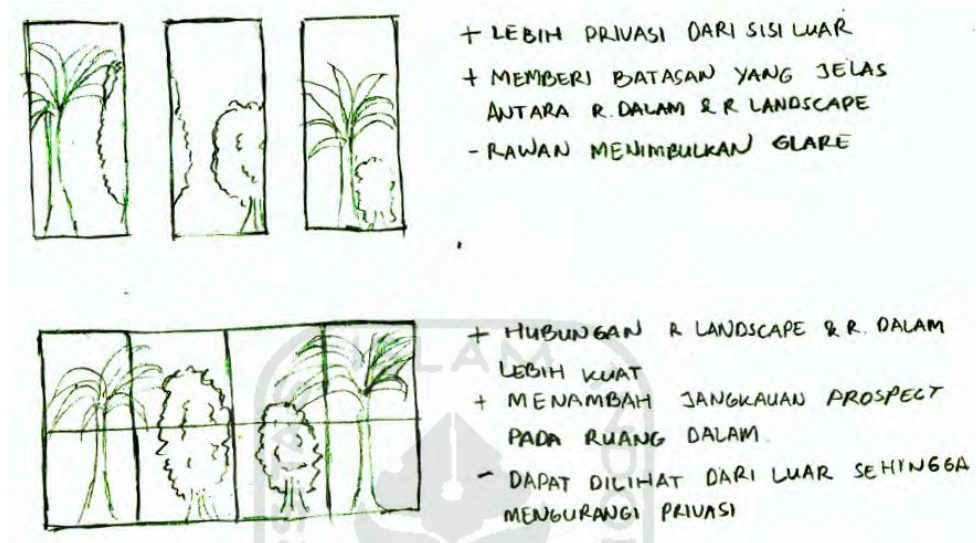 + LEBIH PRIVASI DARI SISI LUAR
+ MEMBERI BATASAN YANG JELAS
ANTARA R. DALAM & R LANDSCAPE
- RAWAN MENIMBULKAN GLARE
+ HUBUNGAN R LANDSCAPE & R. DALAM
LEBIH KUAT
+ MENAMBAH JANGKAUAN PROSPECT
PADA RUANG DALAM
- DAPAT DILIHAT DARI LUAR SEHINGGA
MENGURANGI PRIVASI